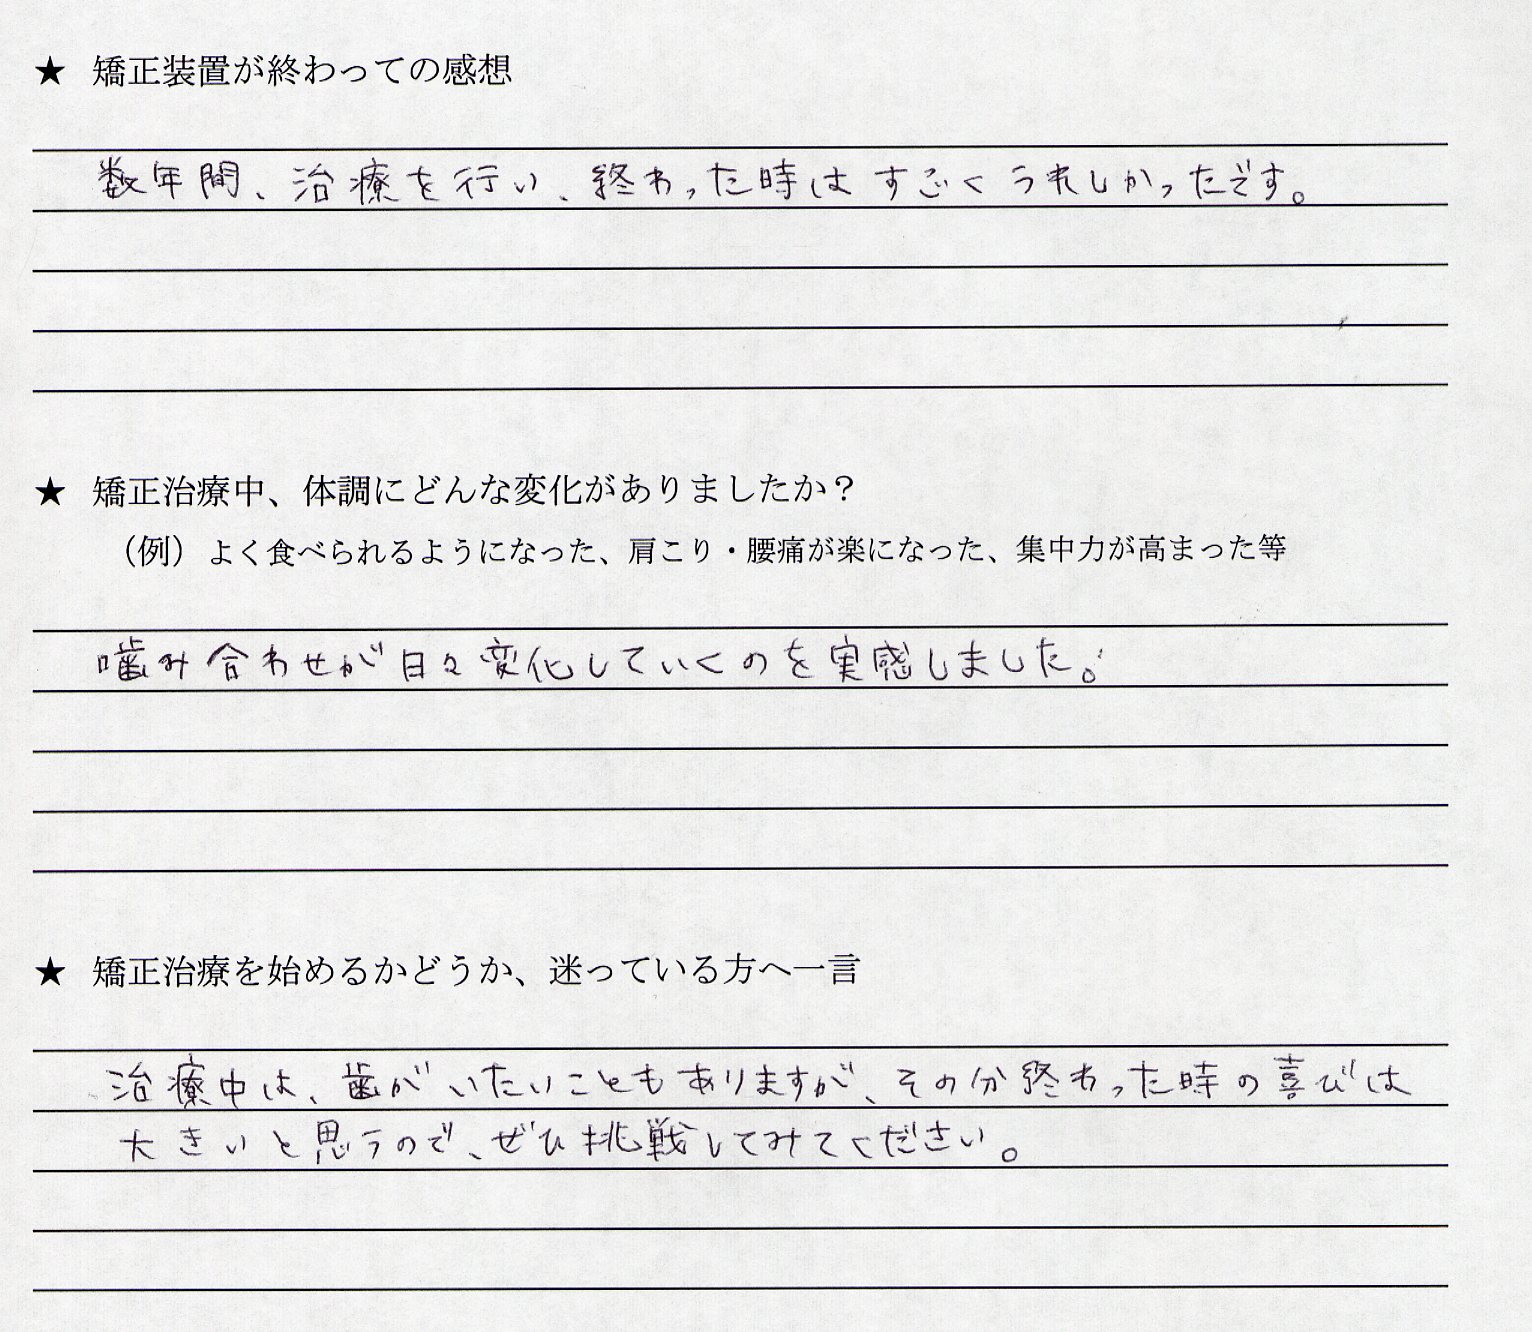 ★ 矯正装置が終わっての感想
数年間、治療を行い、終わった時はすごくうれしかったです。
★ 矯正治療中、体調にどんな変化がありましたか？
（例）よく食べられるようになった、肩こり・腰痛が楽になった、集中力が高まった等
噛み合わせが日々変化していくのを実感しました。
★ 矯正治療を始めるかどうか、迷っている方へ一言
治療中は、歯がいたいこともありますが、その分終わった時の喜びは
大きいと思うので、ぜひ挑戦してみてください。